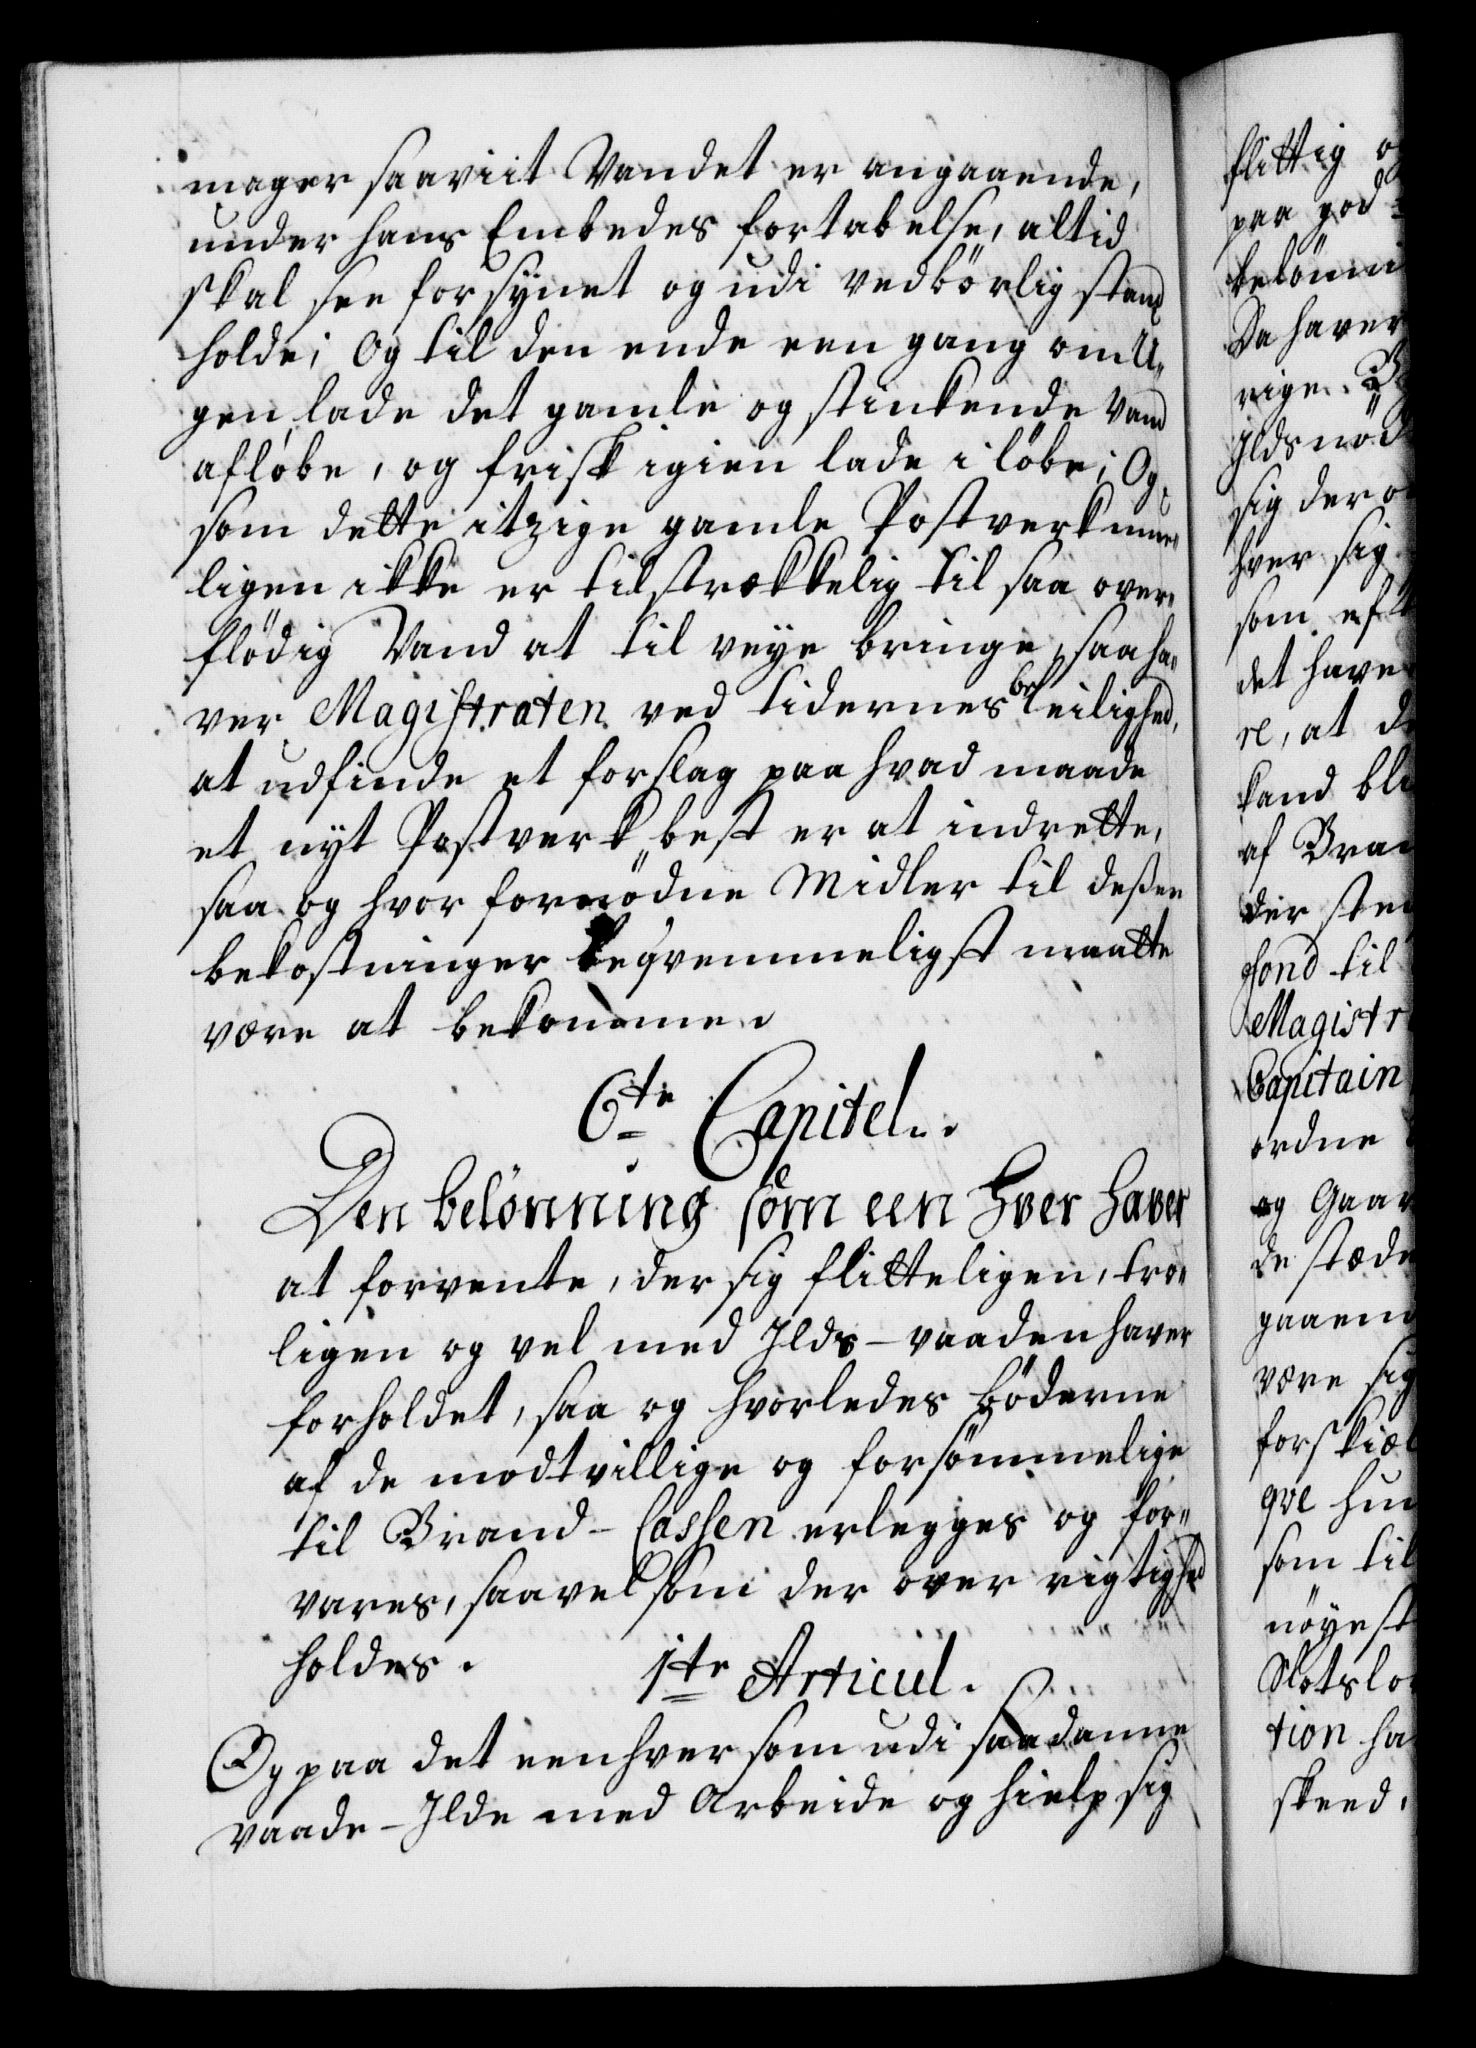 mager saaviit Vandet er angaaende,
under hans Embedes fortabelse, altid
skal see forsynet og udi vedbörlig stand
holde; Og til den ende een gang om U„
gen lade det gamle og stinkende Vand
aflöbe, og frisk igien lade i löbe; Og
som dette itzige gamle Postverk
ligen ikke er tilstrækkelig til saa over„
flödig Vand at til veye bringe, saa ha„
ver Magistraten ved tidernes beleilighed,
at udfinde et forslag paa hvad maade
et nyt Postverk best er at indrette,
saa og hvor fornödne Midler til deßen
bekostninger beqvemmeligst maatte
være at bekomme.
6te Capitel.
Den belönning som een hver haver
at forvente, der sig flitteligen, tro„
ligen og vel med Ilds-vaaden haver
forholdet, saa og hvorledes böderne
af de modtvillige og forsömmelige
til Brand-Cassen erlegges og for„
vares, saavel som der over rigtighed
holdes.
1te Articul.
Og paa det eenhver som udi saadanne
vaade-Ilde med Arbeide og hielp sig
flittig
paa god
belönni
Da haver
rige.
Ilds nöd
sig der
hver sig
som eft
det have
re, at d
kand bli
af Bran
der ste
fond til
Magistr
Capitain
ordne
og Gaar
de stæde
gaaend
være sig
forskiæl
qve hun
som til
nöyest
Slotslo
tion ha
skeed,